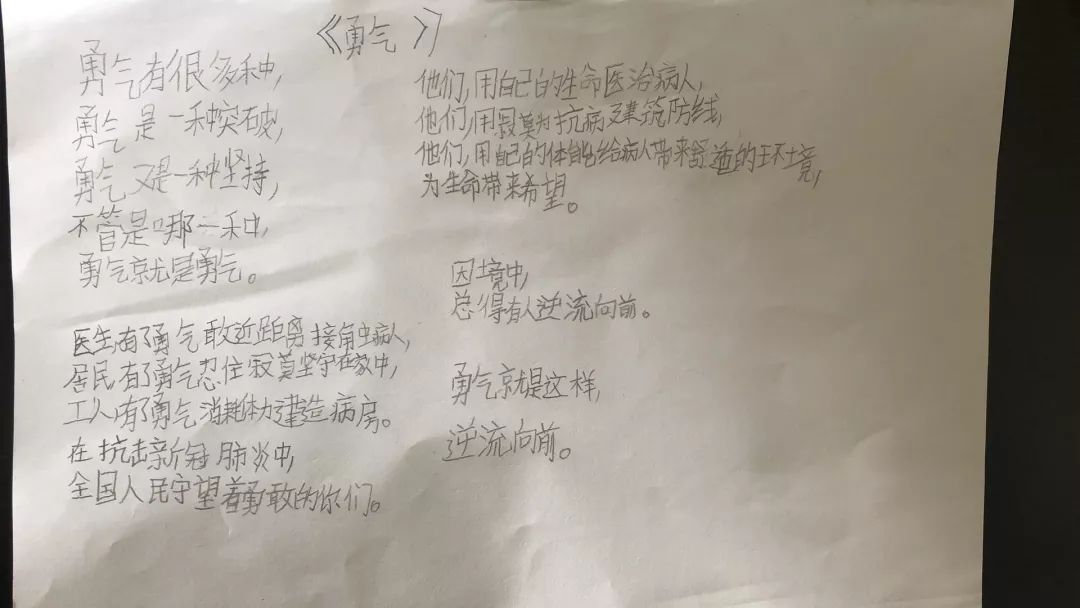 《勇气》
勇气有很多种,
勇气是一种突破,
勇气又是一种坚持,
不管是哪一种,
勇气就是勇气。
医生,有了勇气敢近距离接触病人,
居民,有了勇气忍住寂寞坚守在家中,
工人,有了勇气消耗体力建造病房。
在抗击新冠肺炎中,
全国人民守望着勇敢的你们。
他们,用自己的生命医治病人,
他们,用寂寞为抗病建筑防线,
他们,用自己的体能给病人带来舒适的环境,
为生命带来希望。
因境中,
总得有人逆流向前。
勇气就是这样,
逆流向前。